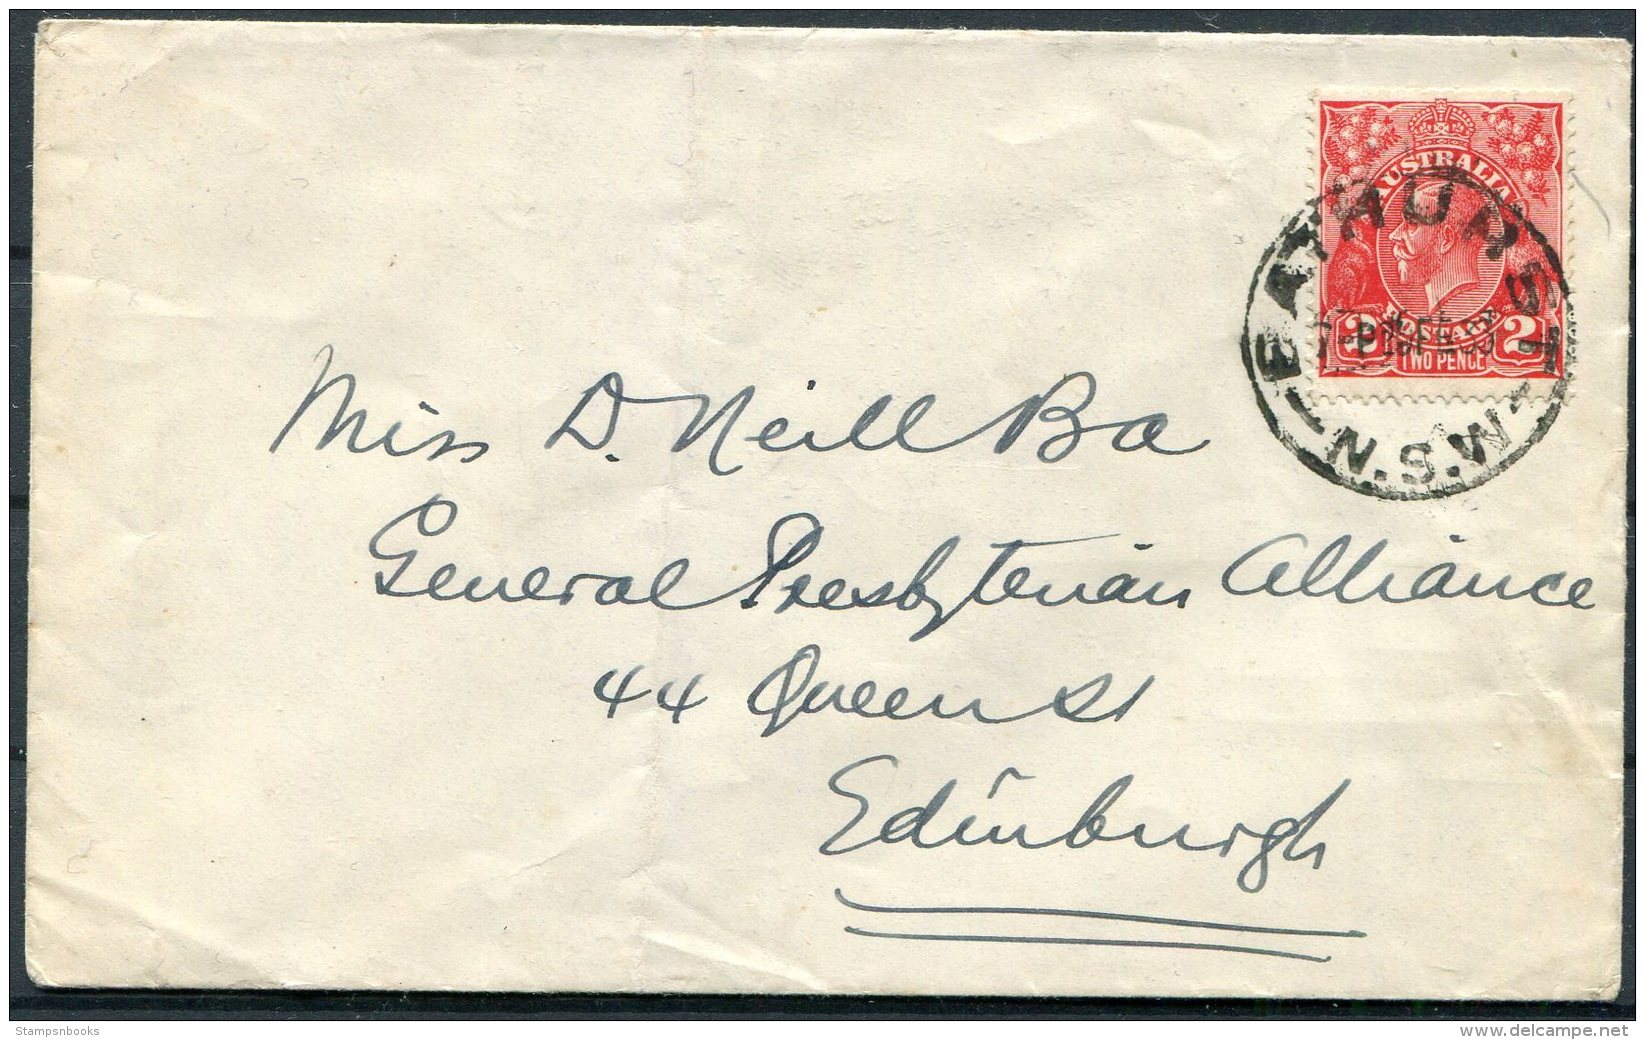 AUSTRALIA
POSTAGE
2 TWO PENCE 2
BATHURST
N.S.W
Miss D. Neill BA
General Presbyterian Alliance
44 Queen St
Edinburgh
Stampsnbooks
www.delcampe.net